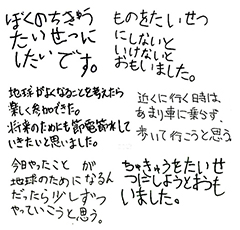 ぼくのちきゅう
たいせつに
したいです。
ものをたいせつ
にしないと
いけないと
おもいました。
地球がよくなることを考えたら
楽しく参加できた。
将来のためにも節電節水して
いきたいと思いました。
近くに行く時は、
あまり車に乗らず、
歩いて行こうと思う。
今日やったこと が
地球のためになるん
だったら少しずつ
やっていこうと思う。
ちきゅうをたいせ
つにしようとおも
いました。